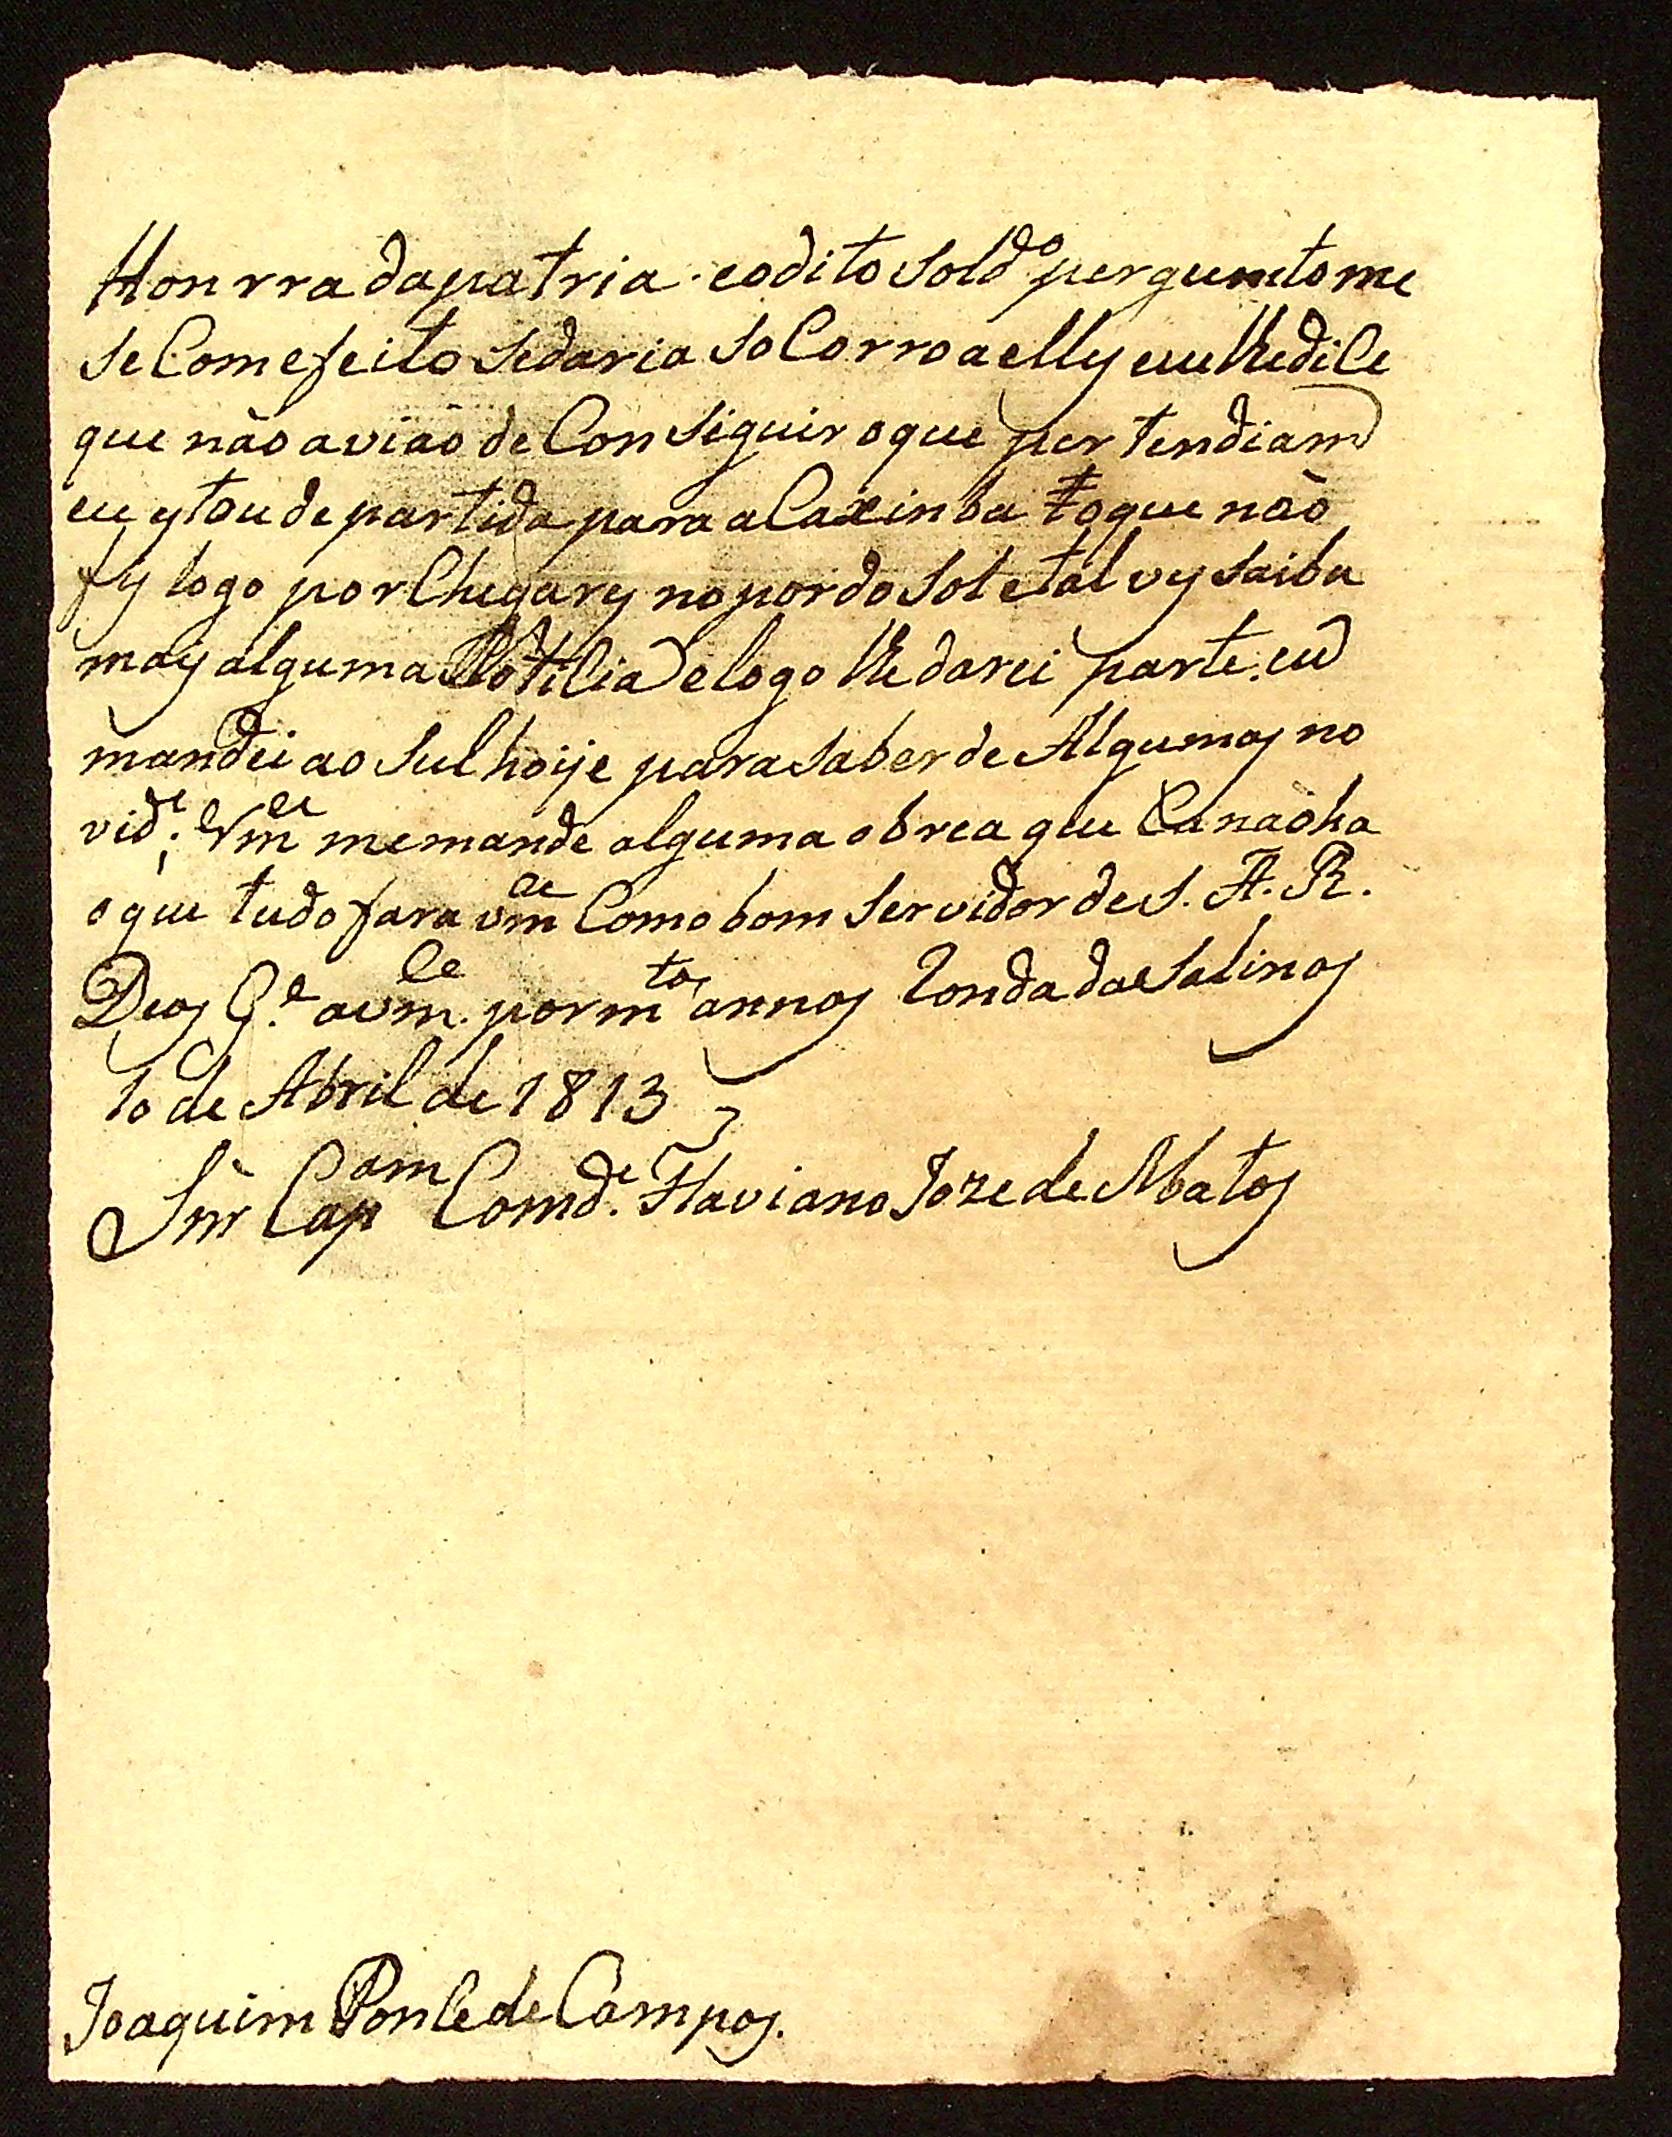 Honrra da patria. e o dito sold.º perguntome
se Com efeito se daria so Corro a elly eu lhe dice
que não avião de Conseguir o que pertendiam
eu ystou de partida para a Caximba to que não
fy logo por Chegarey no por do sol e tal vy saiba
may alguma Noticia e logo lhe darei parte. eu
mandei ao Sul hoije para saber de Algumas no
vid.e; e Vm.ce me mande alguma obrea que Ca não ha
o que tudo fara vm.ce Como bom Servidor de S. A. R.
Deos G.e a vm.ce por m.tos annos Ronda das Salinas
10 de Abril de 1813
Snr Cap.am Comd.e Flaviano Joze de Matos
Joaquim Ponce de Campos.